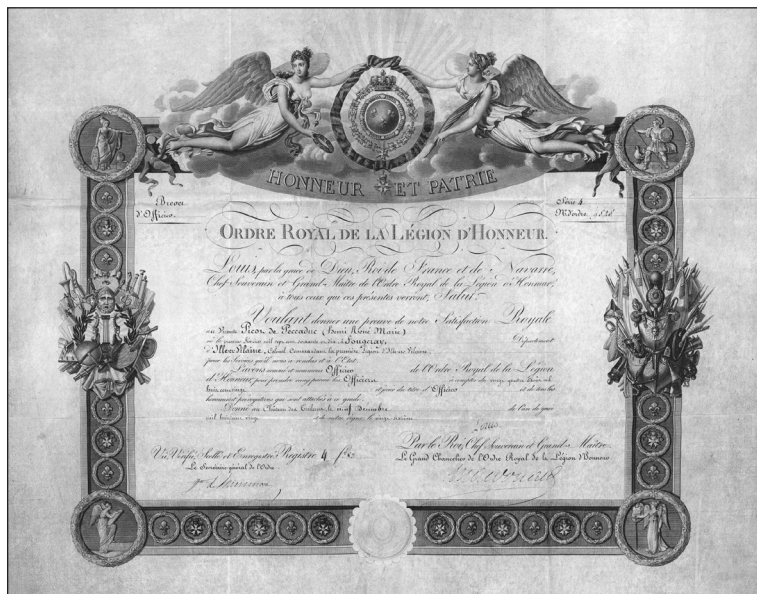 HONNEUR ET PATRIE
Brevet
d'Officier.
Série 4
ORDRE ROYAL DE LA LÉGION D'HONNEUR.
Louis, par la grace de Dieu, Roi de France et de Navarre,
Chef Souverain et Grand-Maître de l'Ordre Royal de la Légion d'Honneur,
à tous ceux qui ces présentes verront, Salut.
Voulant donner une preuve de notre Satisfaction Royale
Picon de Peccaduc (Henri René Marie)
né le premier Février mil sept cent soixante à Fougeray, Département
d'Ille et Vilaine, Colonel Commandant la première Légion d'Ille et Vilaine,
pour les Services qu'il nous a rendus et à l'Etat
L'avons nommé et nommons Officier de l'Ordre Royal de la Légion
d'Honneur, pour prendre rang parmi les Officiers à compter du vingt quatre
et jouir du titre d'Officier et de tous les
honneurs et prérogatives qui sont attachés à ce grade.
Donné au Château des Tuileries, le de l'an de grace
mil huit cent vingt et de notre règne le vingt sixième
Louis
Vu, Vérifié, Scellé et Enregistré Registre 4 f.
Le Secrétaire général de l'Ordre
Par le Roi, Chef Souverain et Grand-Maître
Le Grand Chancelier de l'Ordre Royal de la Légion d'Honneur